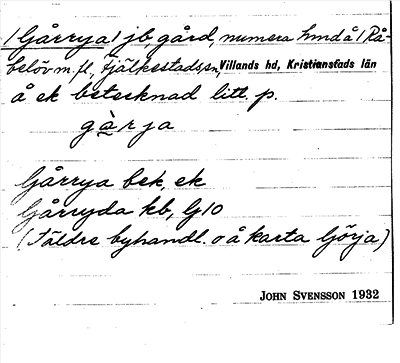 /Gårrya/ jb, gård, numera hmd å /Rå-
belöv m. fl., Fjälkestads sn, Villands hd, Kristianstads län
å ek betecknad litt. p.
gàrja
Gårrya bek, ek
Gårryda kb, GJ0
(I äldre byhandl. o å karta Görja)
JOHN SVENSSON 1932